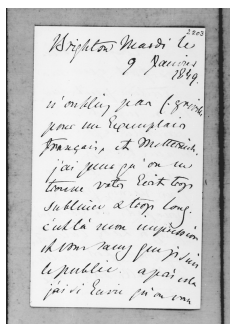 2203
Brighton Mardi le
9 Janvier
1849.
n'oubliez pas
pour un Exemplaire
français, et Metternich.
j'ai peur qu'on ne
trouve votre Ecrit trop
sublime & trop long.
c'est là mon impression
et vous savez que je suis
le public. après cela
j'ai si Envie qu'on vous